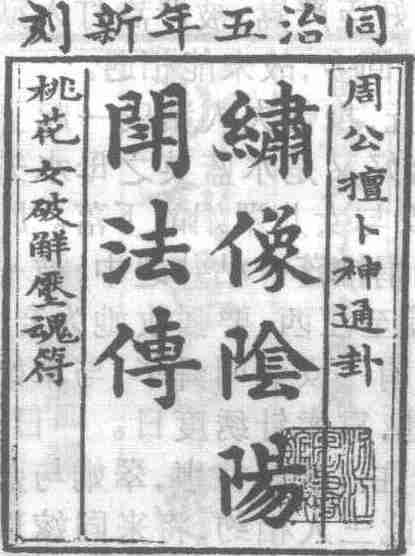 同治五年新刻
周公擅卜神通卦
繡像陰陽
閗法傳
桃花女破解壓魂符